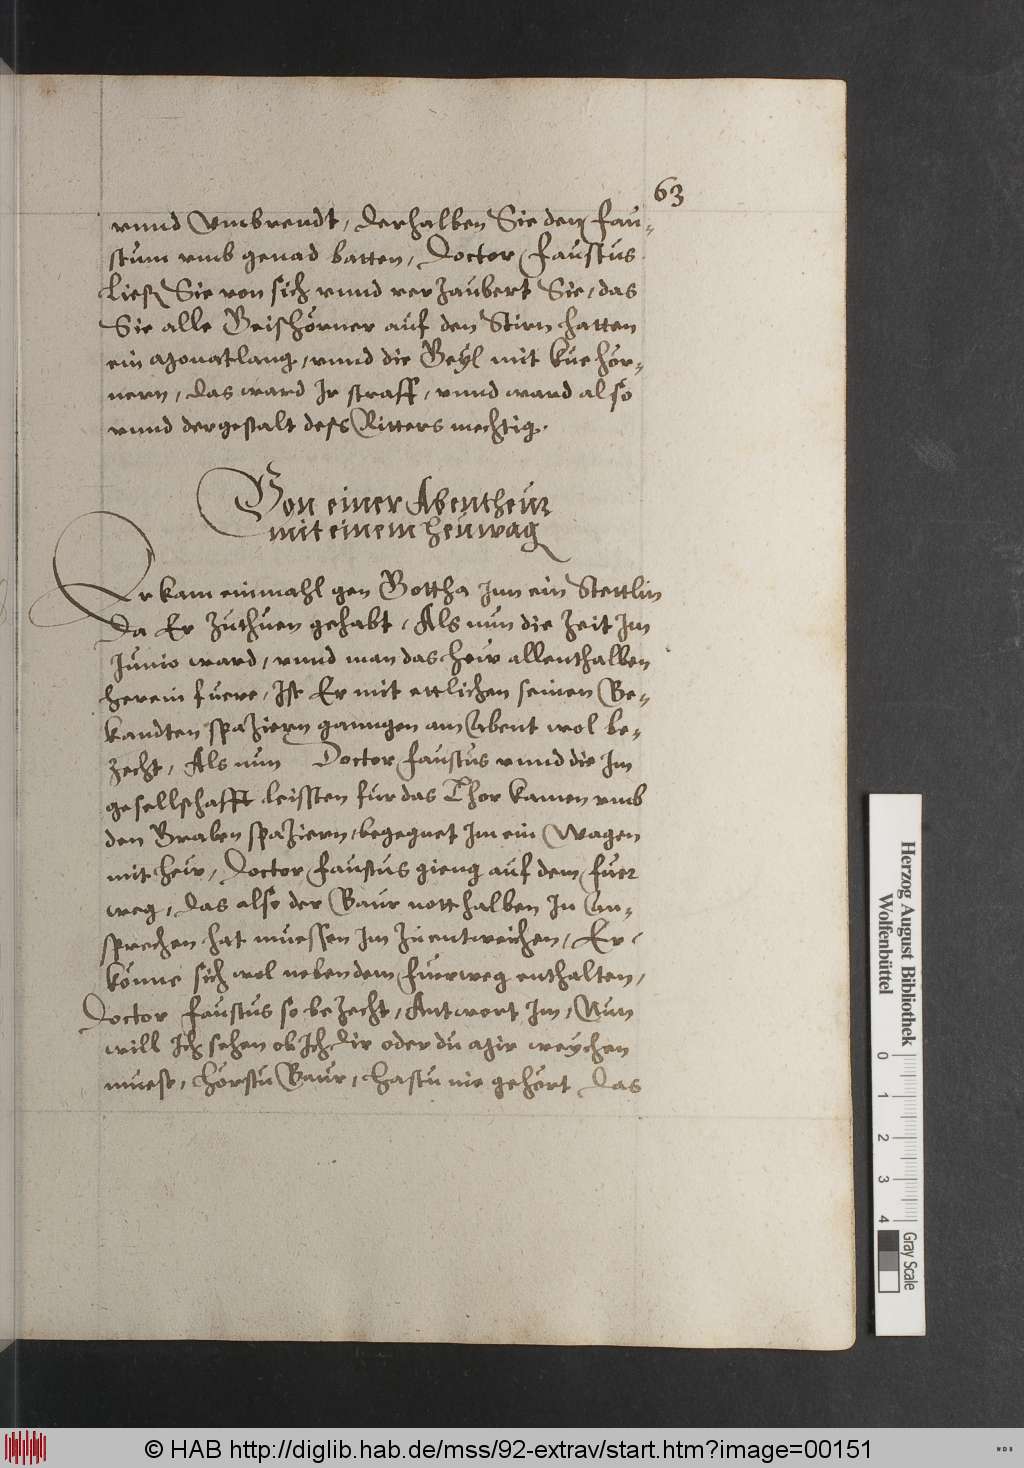 63
vnnd Vmbrendt, Derhalben Sie den Fau-
stum vmb genad batten, Doctor Faustus
Liess Sie von sich vnnd verzaubert Sie, das
Sie alle Geishörner auf den Stirn hatten
ein Monat lang, vnnd die Geyl mit kue hör-
nern, das ward Ir straff, vnnd ward also
vnnd dergestalt dess Ritters mechtig.
Von einer Abentheur
mit einem heuwag
Er kam einmahl gen Gottha Inn ein Stettlin
Da Er zuthuen gehabt, Als nun die Zeit Im
Junio ward, vnnd man das hew allenthalben
herein fuere, Ist Er mit ettlichen seinen Be-
kandten spaziern ganngen am Abent wol be-
zecht, Als nun Doctor Faustus vnnd die Im
gesellschafft leissten für das Thor kamen vmb
den Graben spaziern, begegnet Im ein Wagen
mit hew, Doctor Faustus gieng auf dem fuer
weg, das also der Baur notthalben In An-
sprechen hat muessen Im zu entweichen, Er
könne sich wol neben dem fuerweg enthalten,
Doctor Faustus so bezecht, Antwort Im, Nun
will Ich sehen ob Ich dir oder du Mir weychen
muest, hörstu Baur, hastu nie gehört das
Herzog August Bibliothek
Wolfenbüttel
0 1 2 3 4
Gray Scale
© HAB http://diglib.hab.de/mss/92-extrav/start.htm?image=00151
WDB